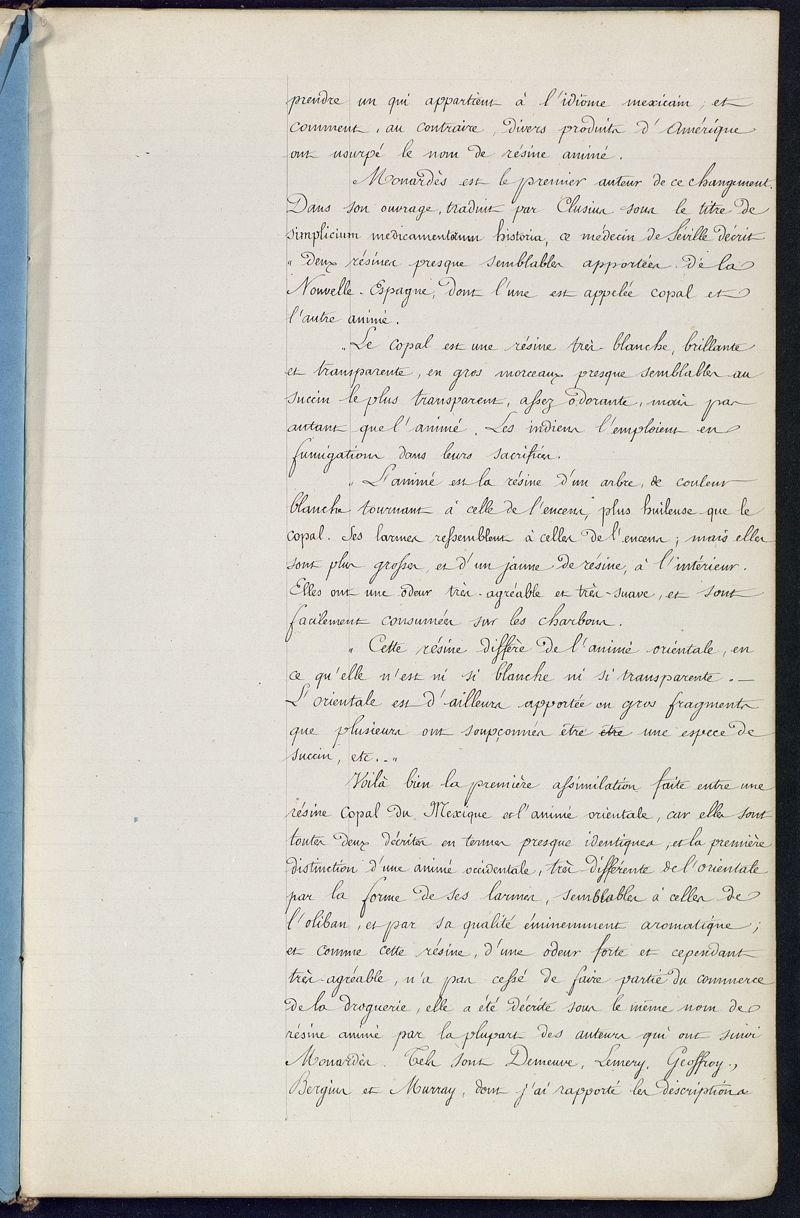 prendre un qui appartient à l'idiôme mexicain, et
comment, au contraire, divers produits d'Amérique
ont usurpé le nom de résine animé.
Monardès est le premier auteur de ce changement.
Dans son ouvrage, traduit par Clusius sous le titre de
simplicium medicamentorum historia, ce médecin de Séville décrit
" deux résines presque semblables apportées de la
Nouvelle-Espagne, dont l'une est appelée copal et
l'autre animé.
" Le copal est une résine très-blanche, brillante
et transparente, en gros morceaux presque semblables au
succin le plus transparent, assez odorante, mais pas
autant que l'animé. Les indiens l'emploient en
fumigations dans leurs sacrifices.
" L'animé est la résine d'un arbre, de couleur
blanche tournant à celle de l'encens, plus huileuse que le
copal. Ses larmes ressemblent à celles de l'encens; mais elles
sont plus grosses, et d'un jaune de résine, à l'intérieur.
Elles ont une odeur très-agréable et très-suave, et sont
facilement consumées sur les charbons.
" Cette résine diffère de l'animé orientale, en
ce qu'elle n'est ni si blanche ni si transparente. —
L'orientale est d'ailleurs apportée en gros fragments
que plusieurs ont soupçonnés être être une espèce de
succin, etc.. "
Voilà bien la première assimilation faite entre une
résine copal du Mexique et l'animé orientale, car elles sont
toutes deux décrites en termes presque identiques, et la première
distinction d'une animé occidentale, très différente de l'orientale
par la forme de ses larmes, semblables à celles de
l'oliban, et par sa qualité éminemment aromatique;
et comme cette résine, d'une odeur forte et cependant
très-agréable, n'a pas cessé de faire partie du commerce
de la droguerie, elle a été décrite sous le même nom de
résine animé par la plupart des auteurs qui ont suivi
Monardès. Tels sont Demeuve, Lemery, Geoffroy,
Bergius et Murray, dont j'ai rapporté les descriptions